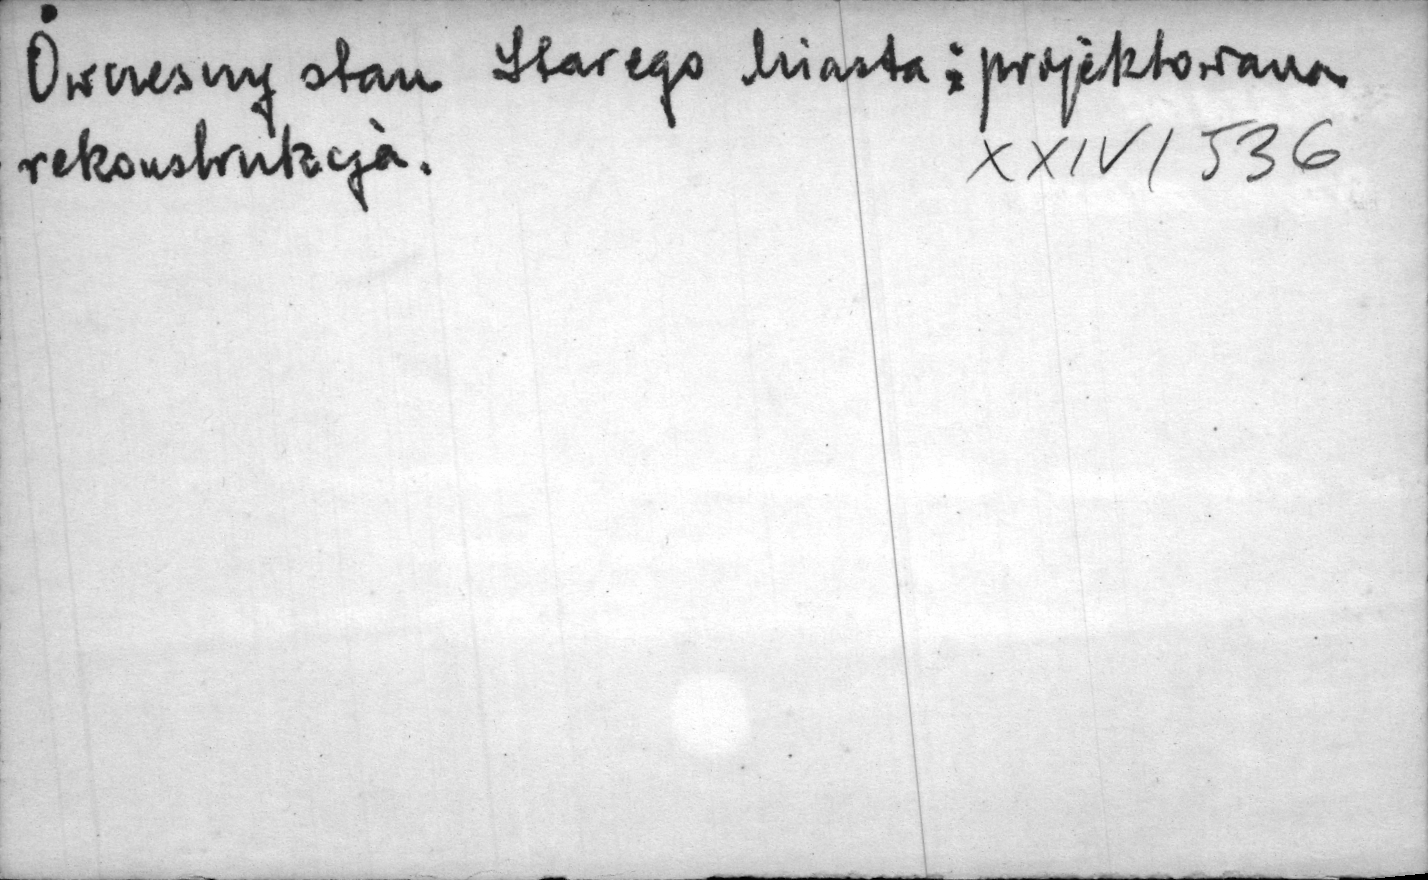 Ówczesny stan Starego Miasta i projektowana
rekonstrukcja.
XXIV/536